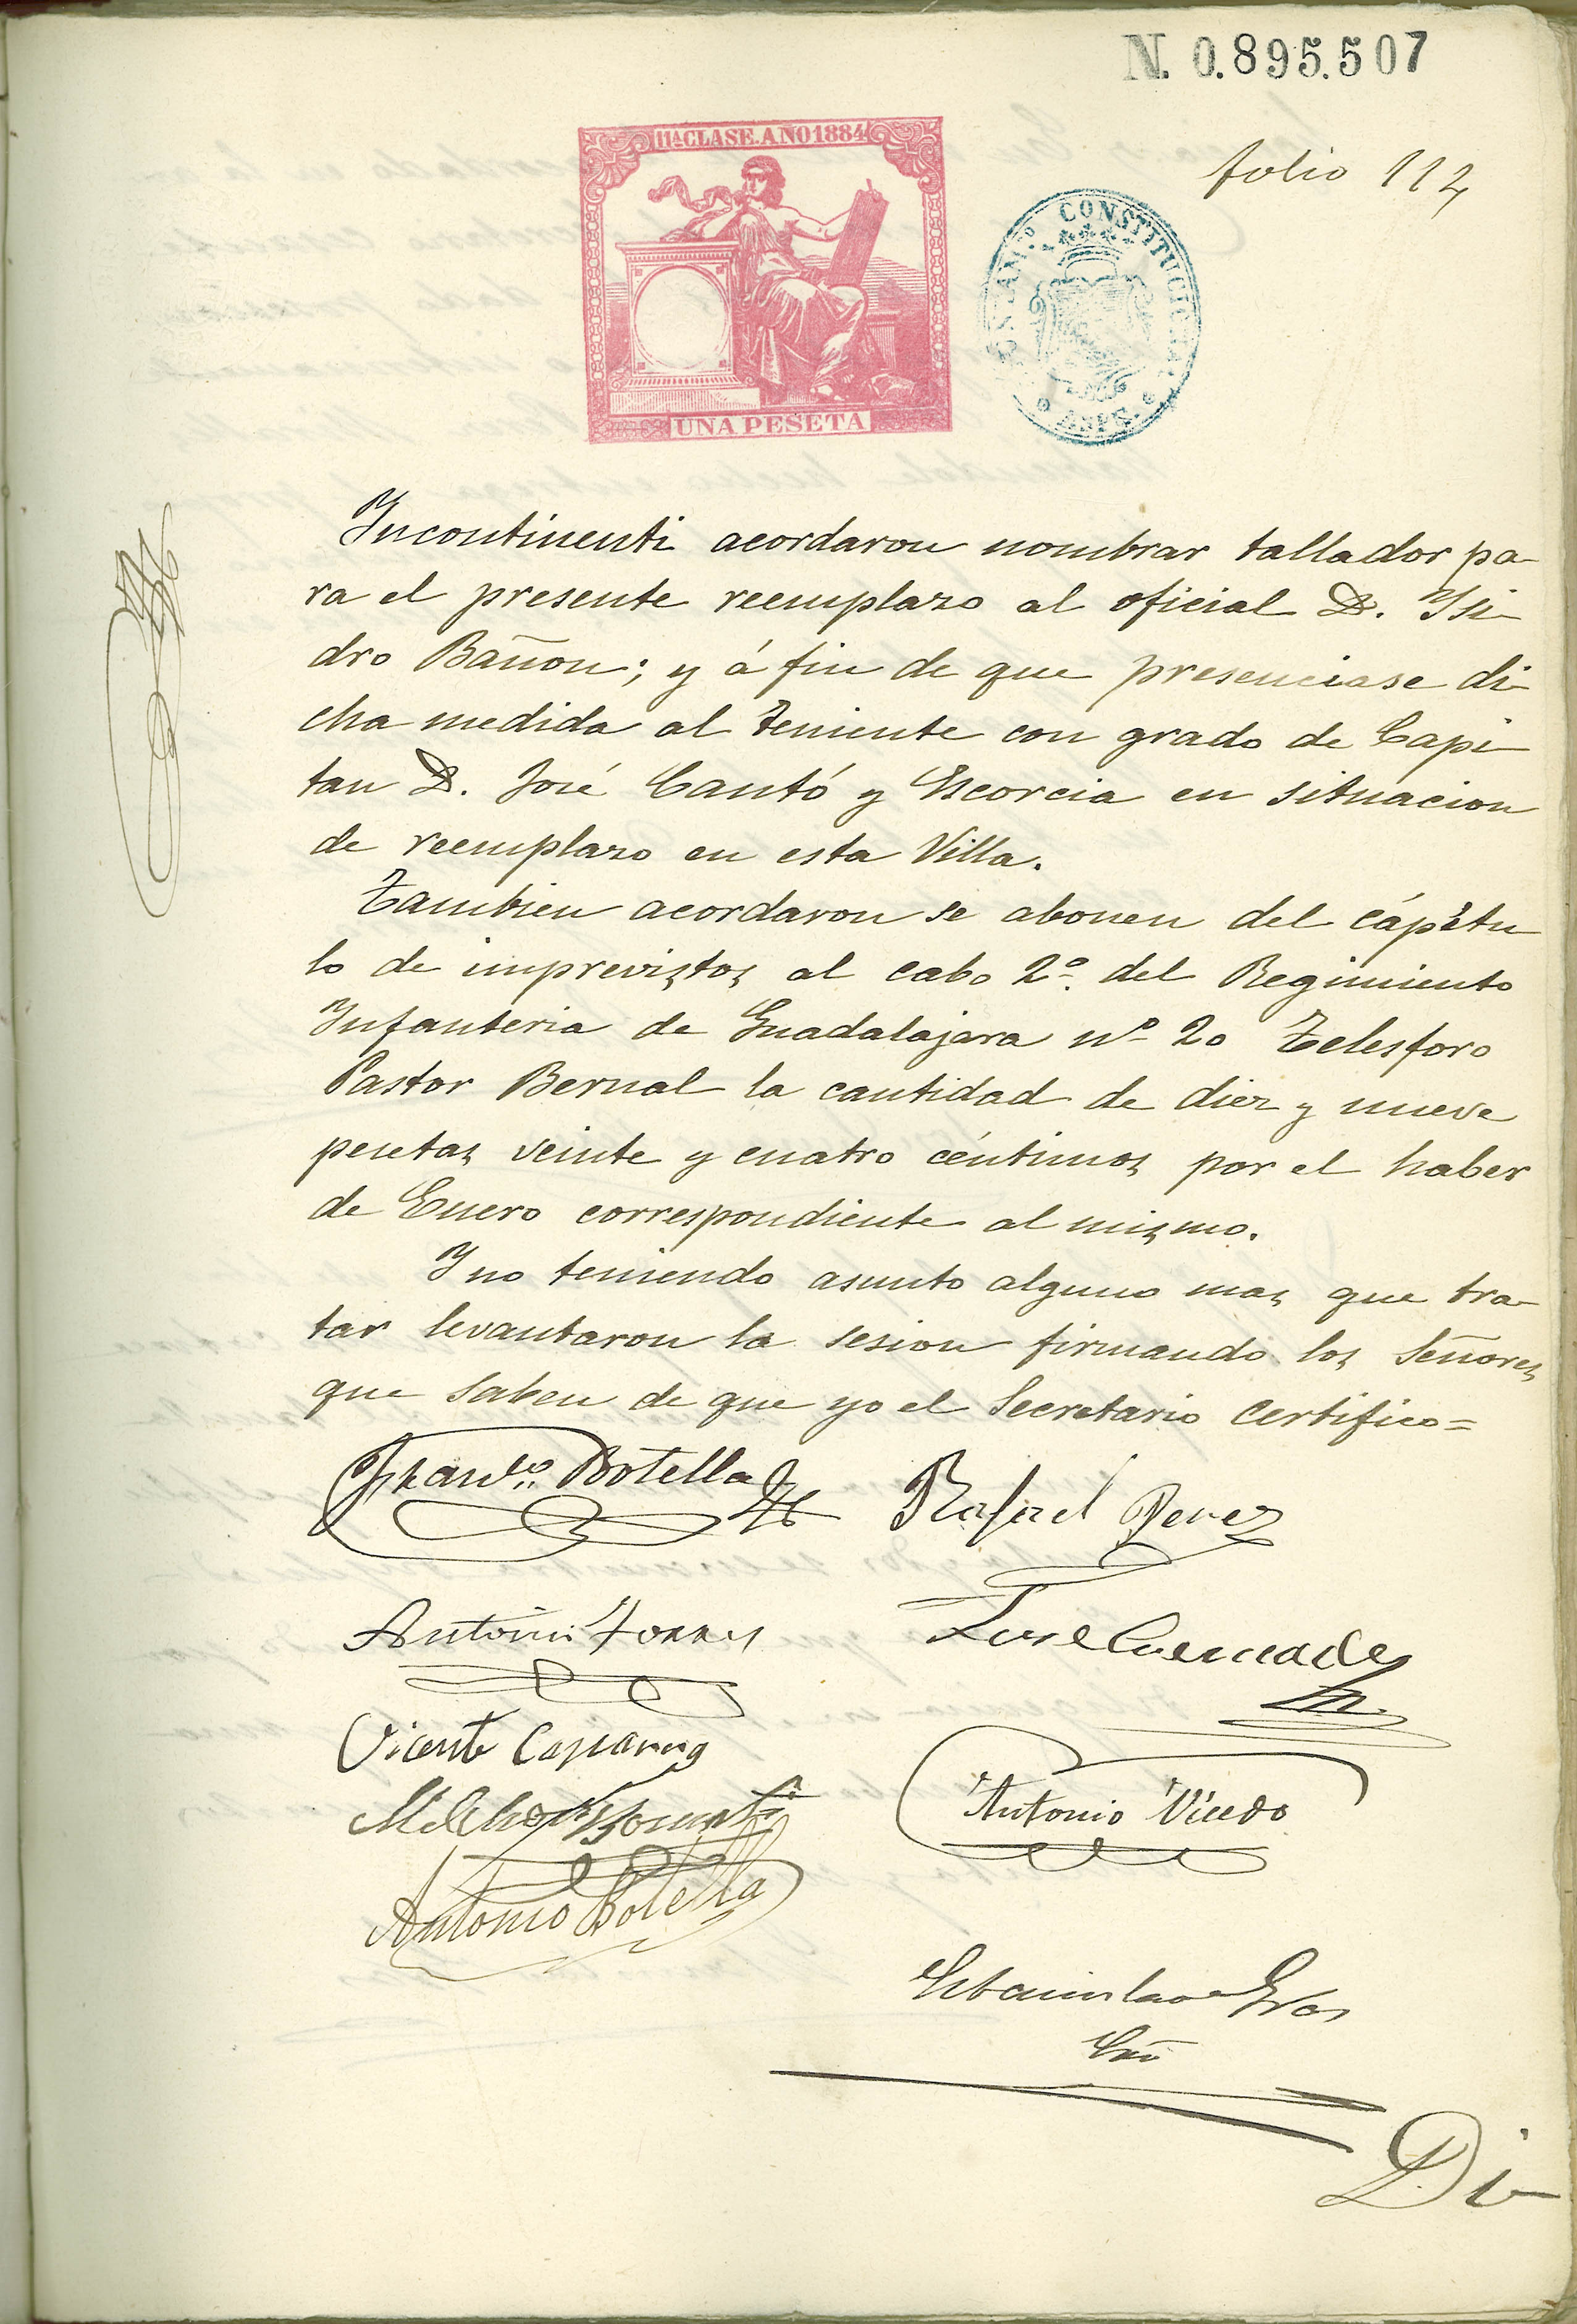 N. 0.895.507
11ª CLASE. AÑO 1884
folio 112
AYUNTAMTº CONSTITUCIONAL
ASPE
UNA PESETA
Incontinenti acordaron nombrar tallador pa-
ra el presente reemplazo al oficial D. Ysi-
dro Bañon; y á fin de que presenciase di-
cha medida al teniente con grado de Capi-
tan D. José Cantó y Escorcia en situacion
de reemplazo en esta Villa.
Tambien acordaron se abonen del cápitu-
lo de imprevistos al cabo 2º del Regimiento
Infanteria de Guadalajara nº 20 Telesforo
Pastor Bernal la cantidad de diez y nueve
pesetas veinte y cuatro céntimos por el haber
de Enero correspondiente al mismo.
Y no teniendo asunto alguno mas que tra-
tar levantaron la sesion firmando los Señores
que saben de que yo el Secretario certifico=
Franco. Botella
Rafael Perez
Antonio Torres
Jose Cremades
Vicente Caparros
Melchor
Antonio Vicedo
Antonio Botella
Estanislao
Srio
Di-